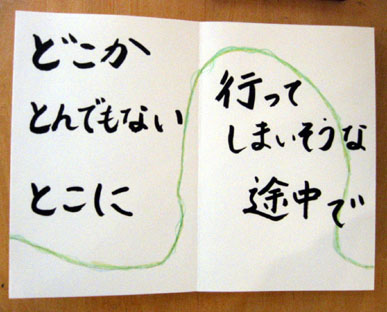 どこか
とんでもない
とこに
行って
しまいそうな
途中で